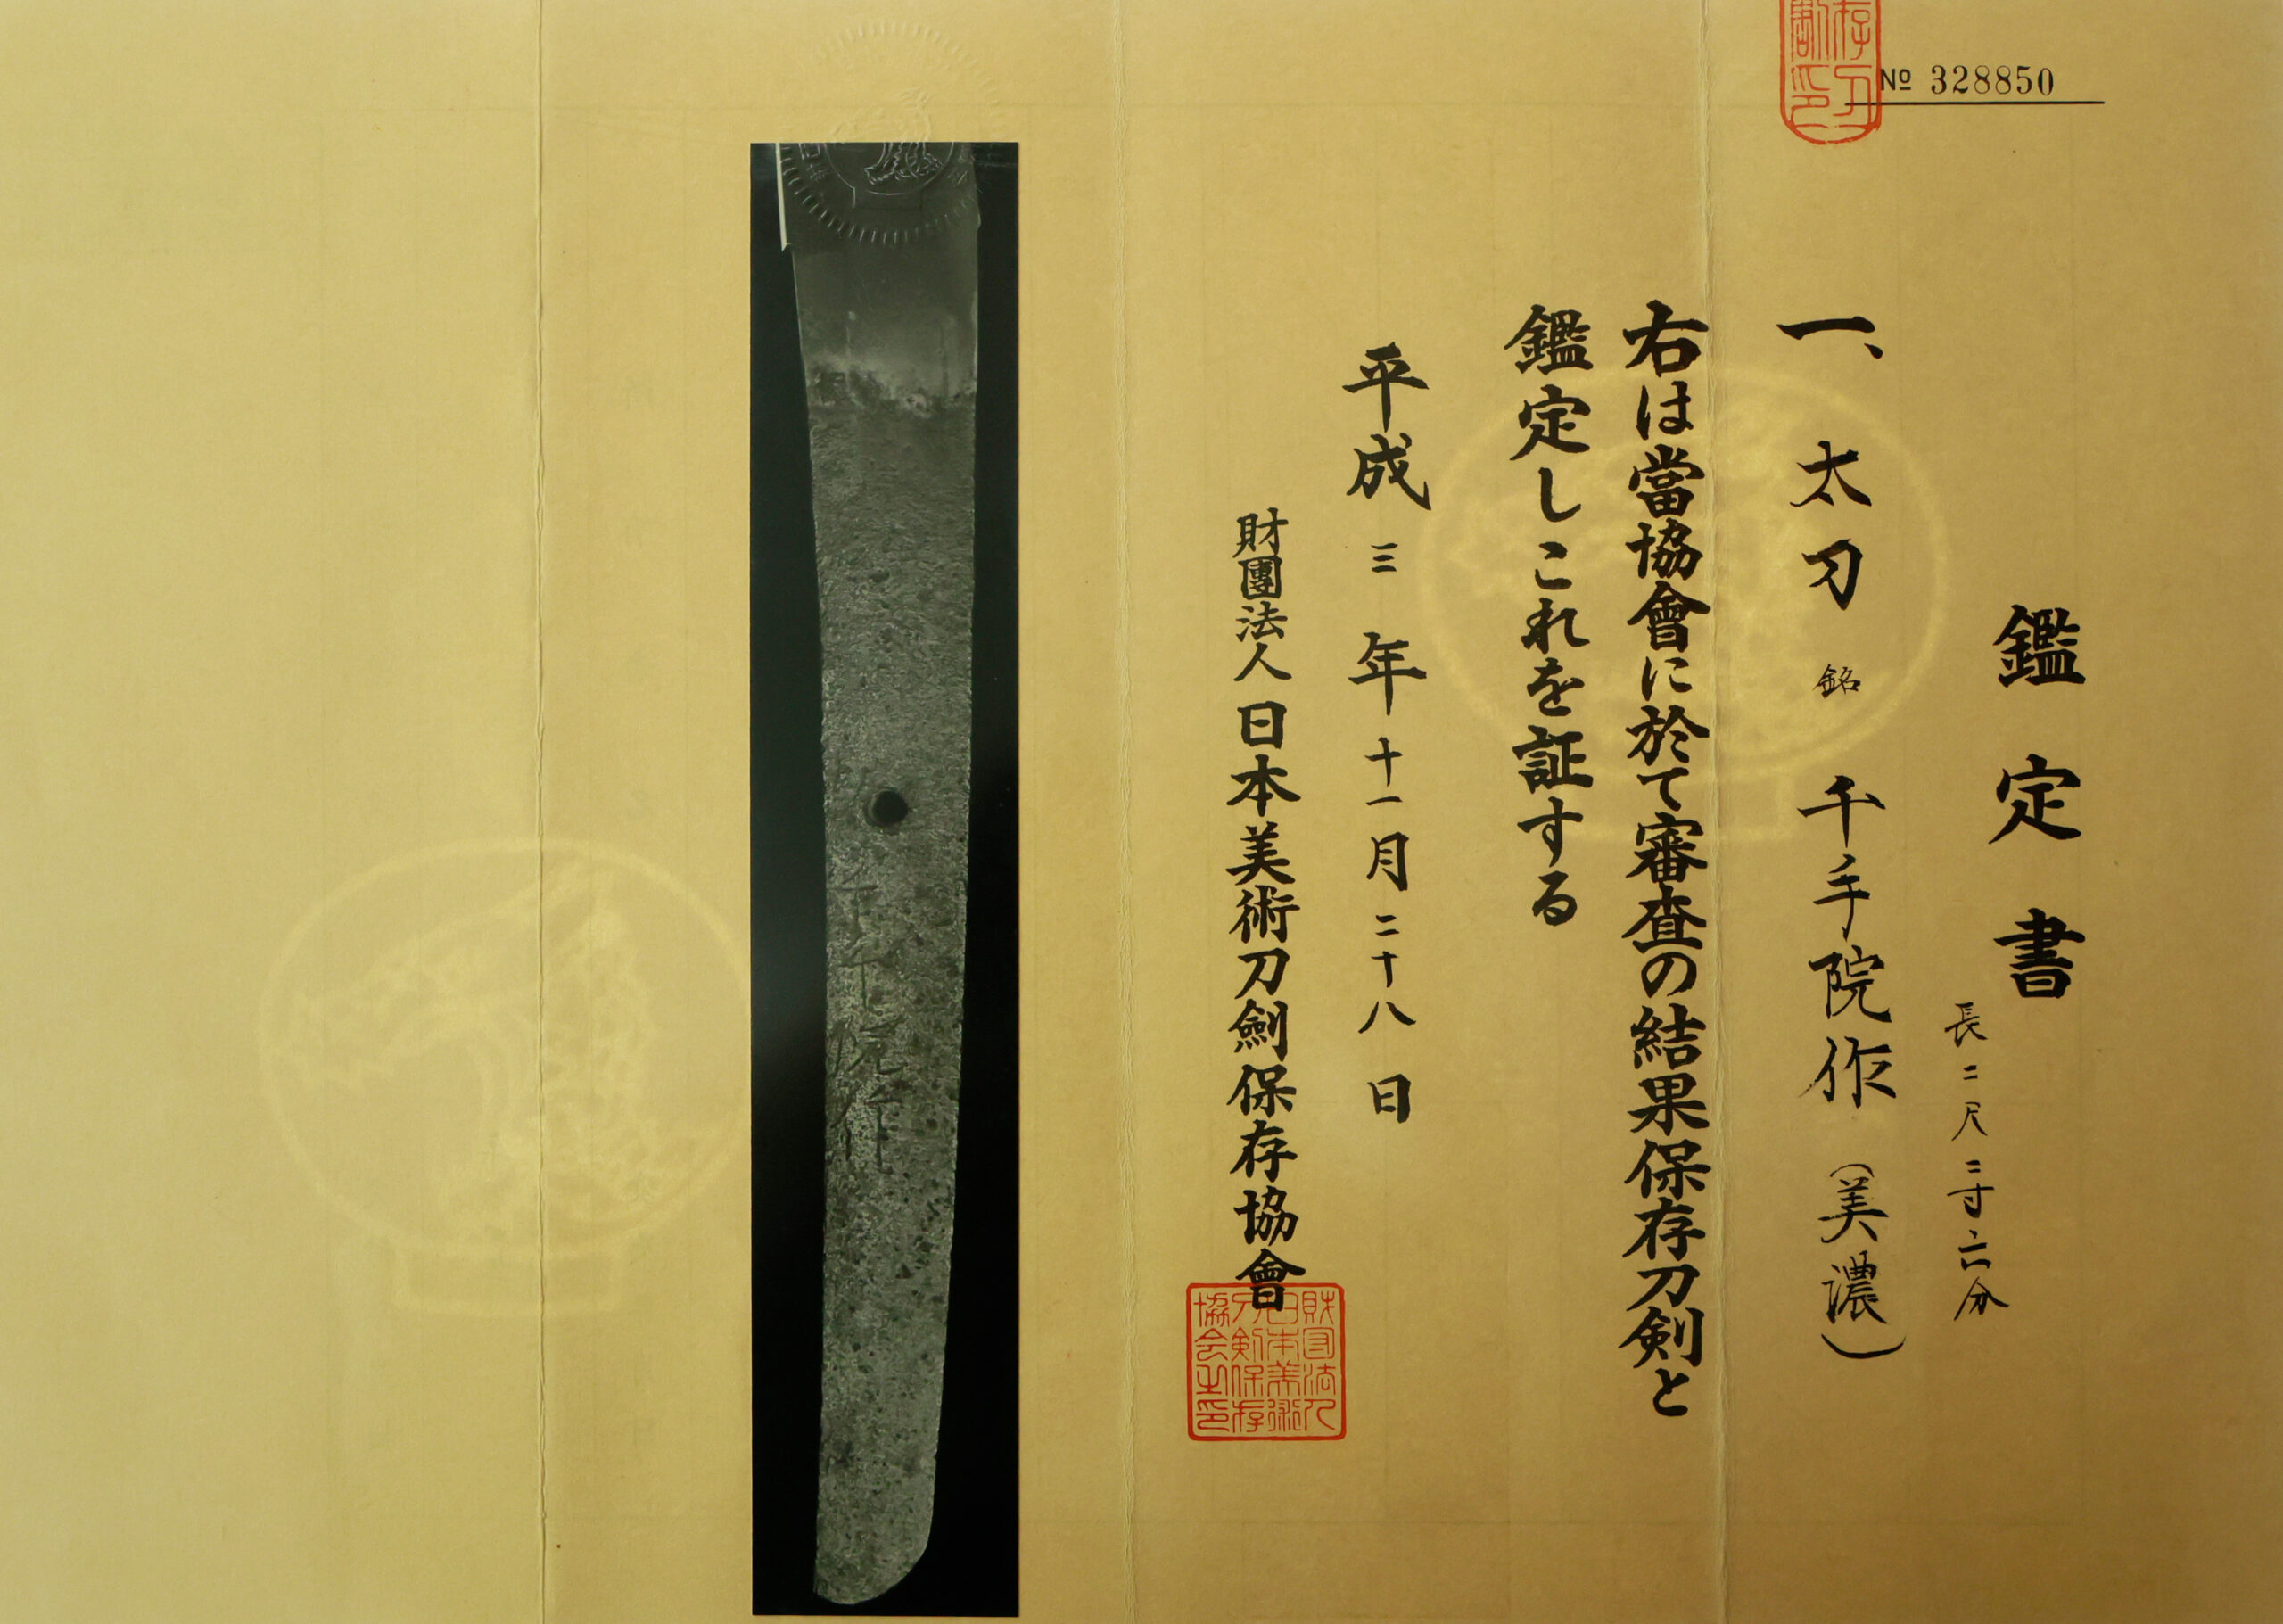 № 328850
鑑定書
長二尺二寸六分
一、太刀 銘 千手院作(美濃)
右は當協會に於て審査の結果保存刀剣と
鑑定しこれを証する
平成三年十一月二十八日
財團法人日本美術刀劍保存協會
財団法人
日本美術
刀剣保存
協会之印
千手院作